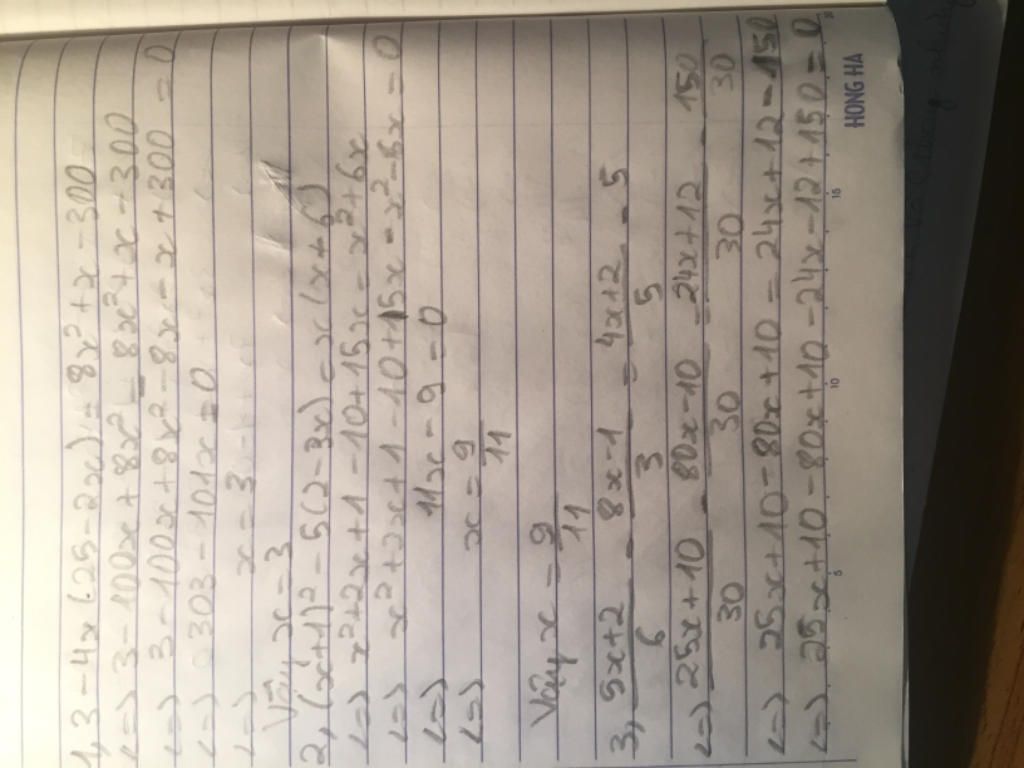 1, 3 - 4x (25 - 2x) = 8x² + x - 300
<=> 3 - 100x + 8x² = 8x² + x - 300
<=> 3 - 100x + 8x² - 8x - x + 300 = 0
<=> 303 - 101x = 0
<=> x = 3
Vậy x = 3
2, (x+1)² - 5(2 - 3x) = x (x + 6)
<=> x² + 2x + 1 - 10 + 15x = x² + 6x
<=> x² + 2x + 1 - 10 + 15x - x² - 6x = 0
<=> 11x - 9 = 0
<=> x = 9/11
Vậy x = 9/11
3, 5x+2/6 - 8x-1/3 = 4x+2/5 - 5
<=> 25x+10/30 - 80x-10/30 = 24x+12/30 - 150/30
<=> 25x + 10 - 80x + 10 = 24x + 12 - 150
<=> 25x + 10 - 80x + 10 - 24x - 12 + 150 = 0
5 10 15
HONG HA